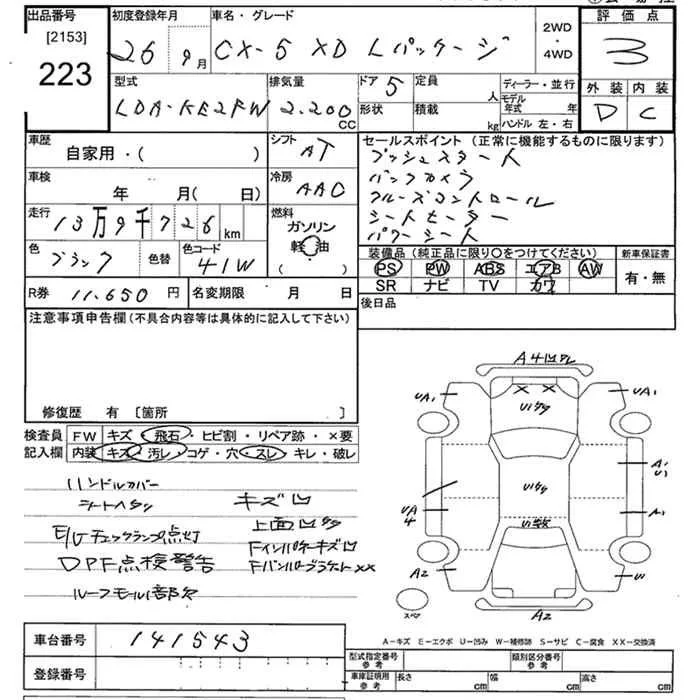 出品番号 初度登録年月 車名・グレード 2WD ・ 4WD 評価点
[2153]
223 26 9月 CX-5 XD Lパッケージ 3
型式 排気量 ドア 5 定員 人 ディーラー・並行 外装 内装
LDA-KE2FW 2.200 CC 形状 積載 kg モデル年式 年 ハンドル 左・右 D C
車歴 シフト セールスポイント (正常に機能するものに限ります)
自家用・( ) AT プッシュスタート
車検 冷房 バックカメラ
年 月( 日) AAC クルーズコントロール
走行 燃料 シートヒーター
13万9千726km ガソリン パワーシート
色 色替 色コード 軽油 装備品 (純正品に限り○をつけてください) 新車保証書
ブラック 41W ( ) PS PW ABS エアB AW 有・無
SR ナビ TV カワ
R券 11.650 円 名変期限 月 日 後日品
注意事項申告欄 (不具合内容等は具体的に記入して下さい)
修復歴 有 [箇所 ]
検査員 FW キズ・飛石・ヒビ割・リペア跡・×要
記入欄 内装 キズ・汚レ・コゲ・穴・スレ・キレ・破レ
ハンドルカバー
シートヘタリ キズ凹
E/Gチェックランプ点灯 上面凹
DPF点検警告 Fインパクキズ凹
Fバンパーブラケット××
ルーフモール部欠
A4凹
UA1 × × UA1
U1
A1 U1
UA4 U1 A1
U1
A2 W
スペア A2
A-キズ E-エクボ U-凹み W-補修跡 S-サビ C-腐食 XX-交換済
車台番号 141543
型式指定番号 参考 類別区分番号 参考
登録番号 車庫証明用 参考 長さ cm 幅 cm 高さ cm